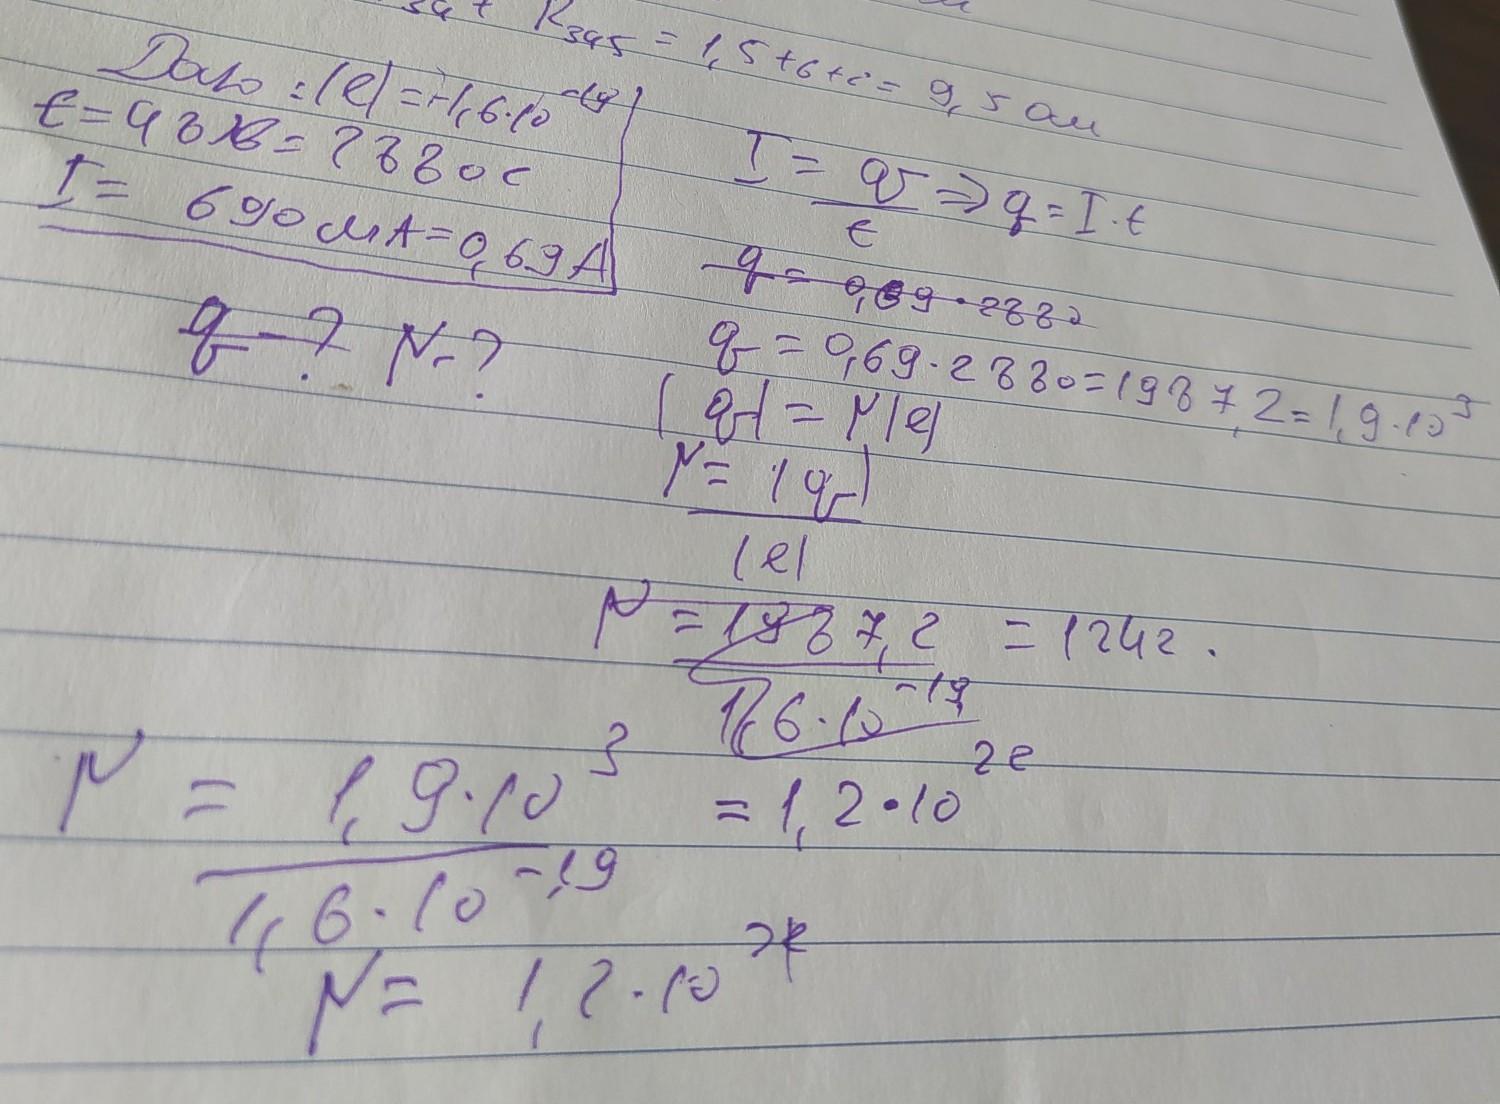 R₃₄₅ = 1,5+6+2 = 9,5 Ом
Дано: |e| = -1,6·10⁻¹⁹
t = 48 хв = 2880 с
I = 690 мА = 0,69 А
q - ? N - ?
I = q/t ⇒ q = I·t
q = 0,69·2880
q = 0,69·2880 = 1987,2 = 1,9·10³
|q| = N|e|
N = |q|/|e|
N = 1987,2/1,6·10⁻¹⁹ = 1242.
N = 1,9·10³/1,6·10⁻¹⁹ = 1,2·10²²
N = 1,2·10